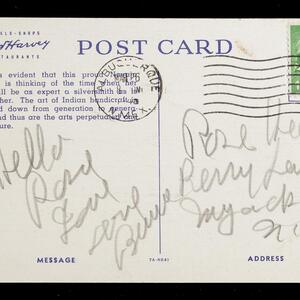 TELS-SHOPS
Harvey
STAURANTS
POST CARD
s evident that this proud
is thinking of the time when her
ll be as expert a silversmith as
her. The art of Indian handicraft
d down from generation to genera-
nd thus are the arts perpetuated and
ALBUQUERQUE
N. MEX.
Hello
Rose
Love
Love
Rose
Nyack
N.Y.
MESSAGE
7A-H041
ADDRESS